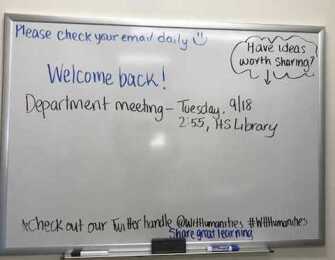 Please check your email daily
Have ideas
worth sharing?
Welcome back!
Department meeting - Tuesday, 9/18
2:55, HS Library
*Check out our Twitter handle
Share great learning